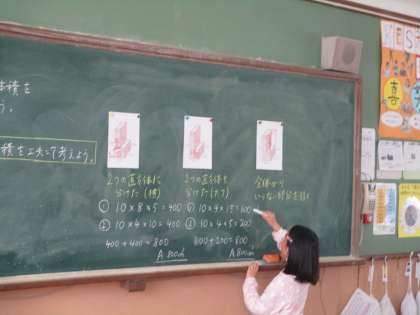 体積を
う。
積を工夫して考えよう。
2つの直方体に
分けた(横)
① 10×8×5=400
② 10×4×10=400
400+400=800
A 800㎤
2つの直方体を
分けた(たて)
① 10×4×15=600
② 10×4×5=200
600+200=800
A 800㎤
全体から
いらない部分を